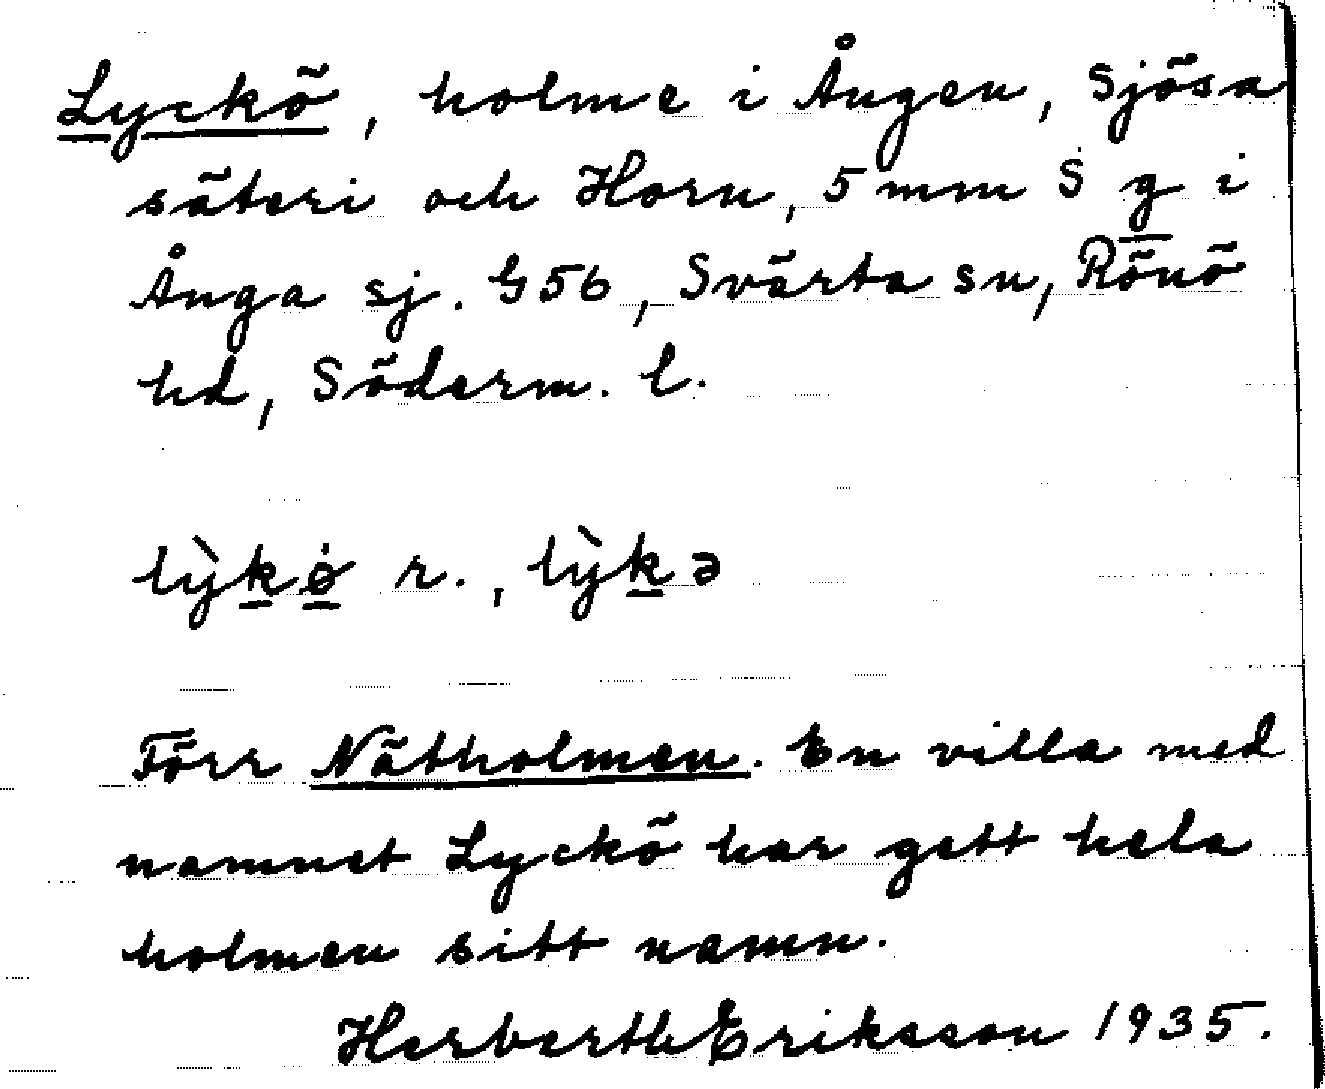 Lyckö, holme i Ången, Sjösa
säteri och Horn, 5 mm S g i
Ånga sj. G56, Svärta sn, Rönö
hd, Söderm. l.
lỳkø̇ r., lỳkə
Förr Nätholmen. En villa med
namnet Lyckö har gett hela
holmen sitt namn.
Herberth Eriksson 1935.